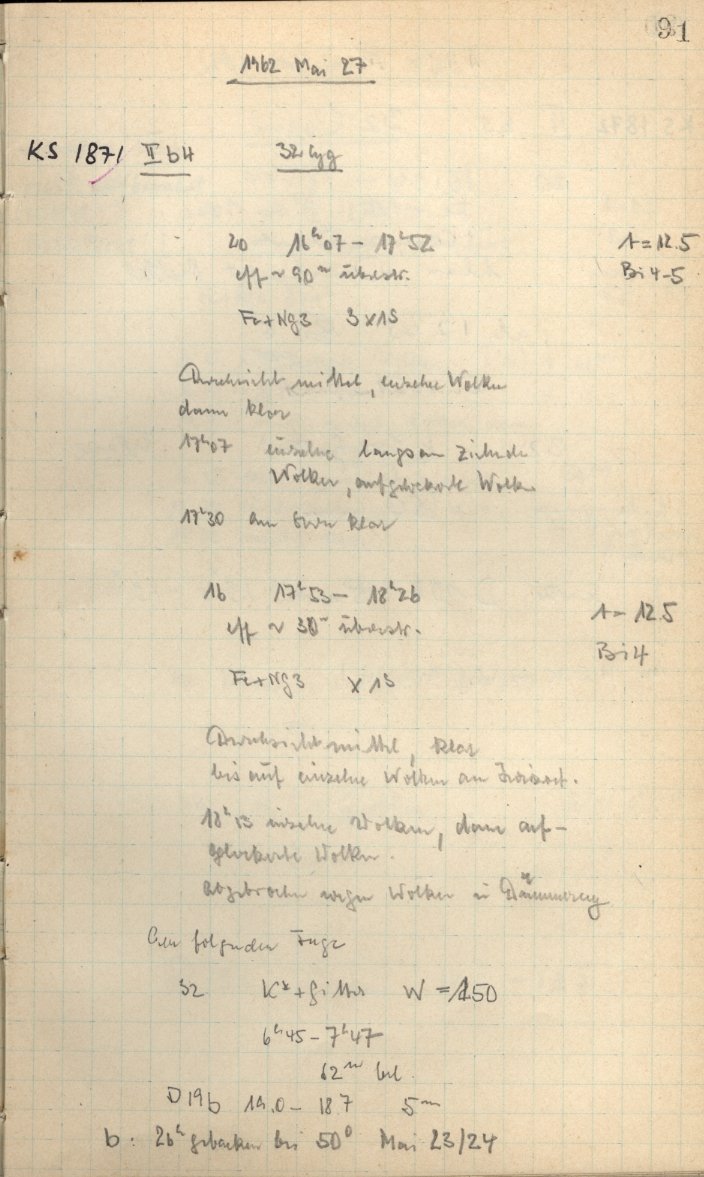 91
1962 Mai 27
KS 1871 II b4 32 Cyg
20 16h07 – 17h52 t = 12.5
eff ~ 90m überstr. Bi 4-5
Fe+Ng3 3x1S
Durchsicht mittel, einzelne Wolken
dann klar
17h07 einzelne langsam ziehende
Wolken, aufgelockerte Wolken
17h30 am klar
16 17h53 – 18h26 t = 12.5
eff ~ 30m überstr.
Bi 4
Fe+Ng3 x 1S
Durchsicht mittel, klar
bis auf einzelne Wolken am Horizont.
18h13 einzelne Wolken, dann auf-
gelockerte Wolken.
abgebrochen wegen Wolken u Dämmerung
Am folgenden Tage
32 K* + Gitter W = 150
6h45 – 7h47
62m bel.
D19b 19.0 – 18.7 5m
b: 26h gebacken bei 50° Mai 23/24